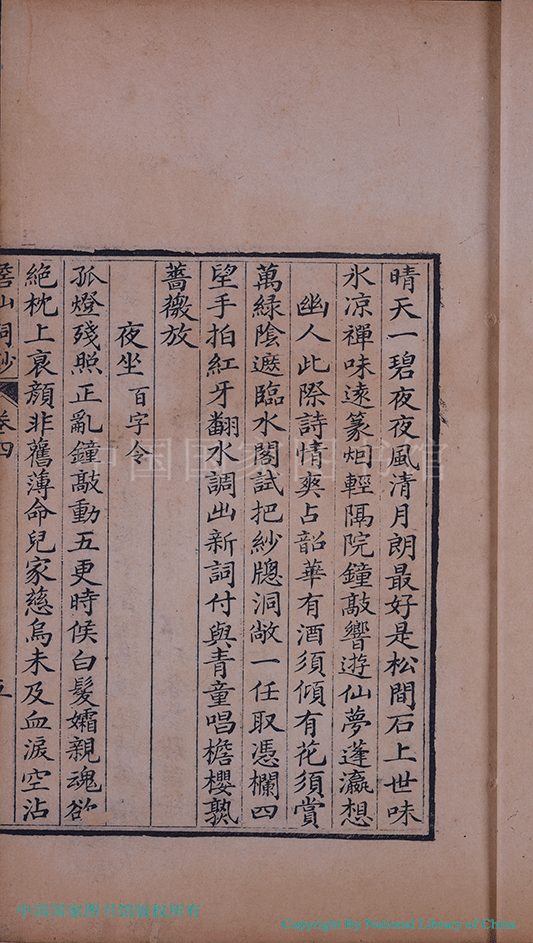 晴天一碧夜夜風清月朗最好是松間石上世味
氷凉禪味遠篆烟輕隔院鐘敲響遊仙夢蓬瀛想
幽人此際詩情爽占韶華有酒須傾有花須賞
萬綠陰遮臨水閣試把紗牕洞敞一任取憑欄四
望手拍紅牙翻水調出新詞付與青童唱檐櫻孰
薔薇放
夜坐 百字令
孤燈殘照正亂鐘敲動五更時候白髮孀親魂欲
絕枕上哀顏非舊薄命兒家慈烏未及血淚空沾
山詞鈔 卷四
中国国家图书馆
中国国家图书馆版权所有
Copyright By National Library of China